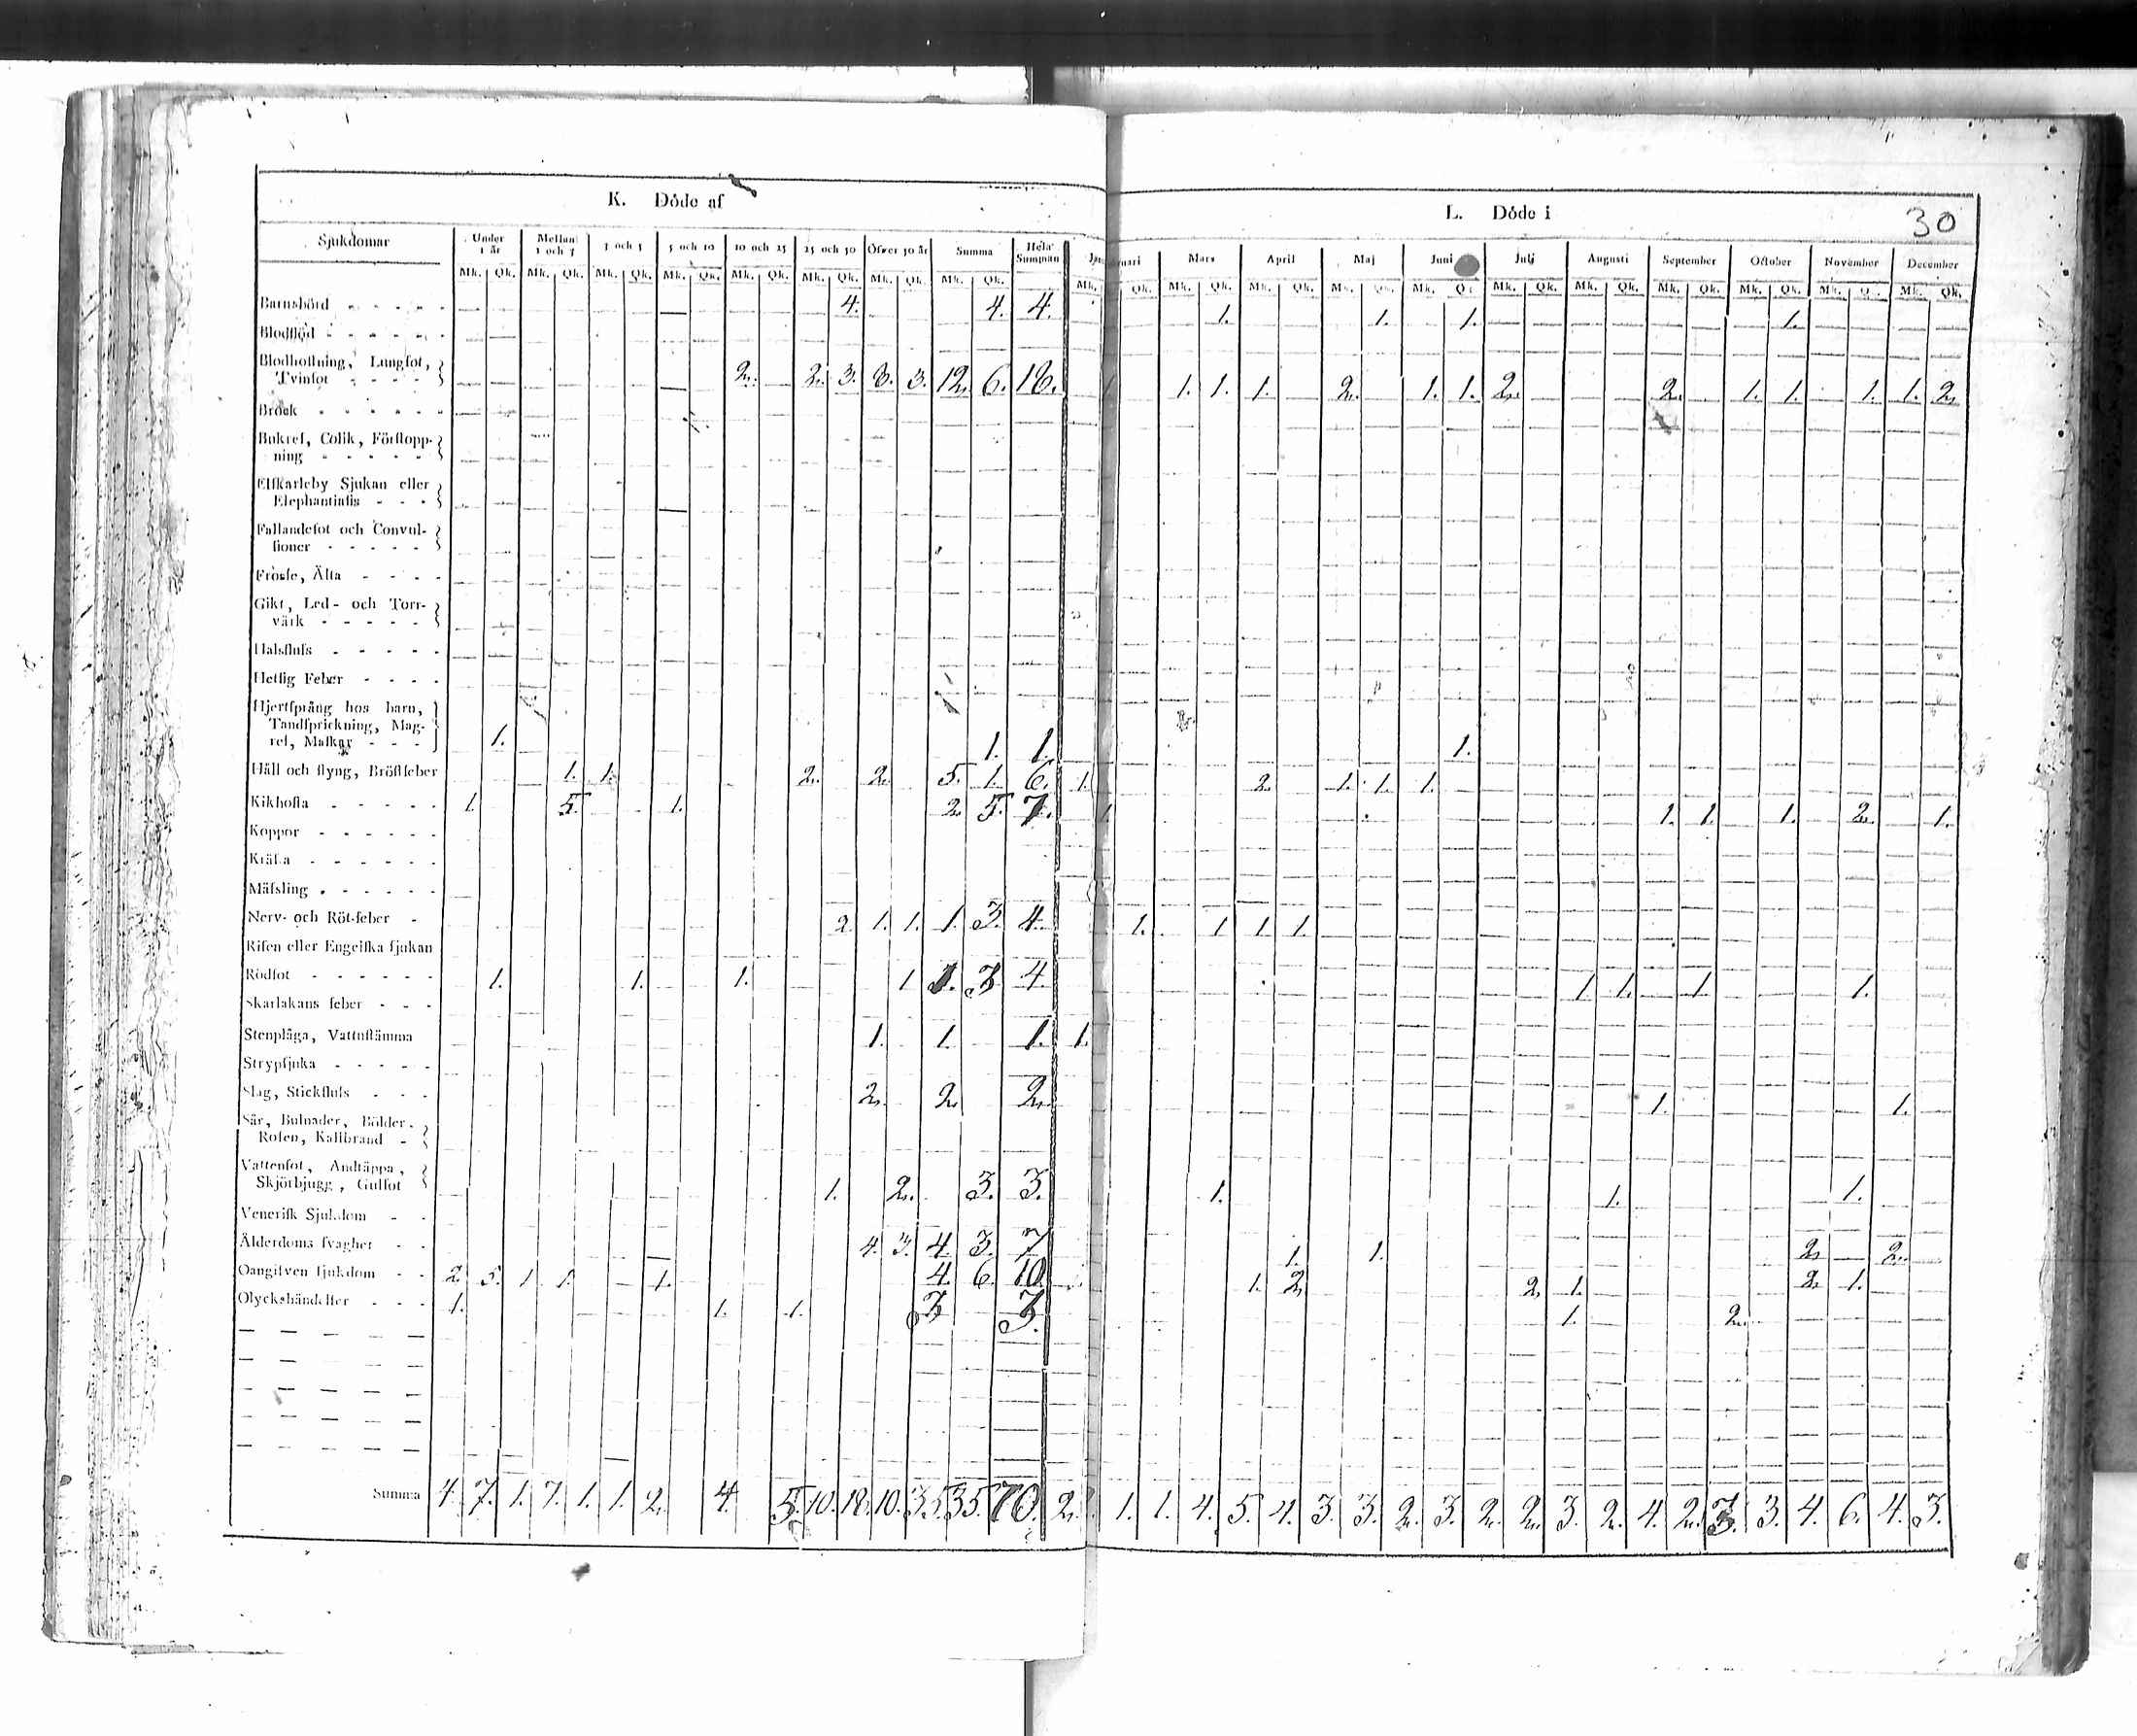 K. Döde af
Sjukdomar Under 1 år Mellan 1 och 3 3 och 5 5 och 10 10 och 25 25 och 50 Öfver 50 år Summa Hela Summan
Mk. Qk. Mk. Qk. Mk. Qk. Mk. Qk. Mk. Qk. Mk. Qk. Mk. Qk. Mk. Qk.
Barnsbörd - - - - - 4. 4. 4.
Blodflöd - - - - - -
Blodhostning, Lungsot,
Tvinsot - - - - 2. 2. 3. 8. 3. 12. 6. 18.
Bråck - - - - - -
Bukref, Colik, Förstopp-
ning - - - - -
Elfkarleby Sjukan eller
Elephantiasis - - -
Fallandesot och Convul-
sioner - - - - -
Frossa, Älta - - - -
Gikt, Led- och Torr-
värk - - - - -
Halsfluss - - - - -
Hetsig Feber - - - -
Hjertsprång hos barn,
Tandsprickning, Mag-
ref, Maskar - - - 1. 1. 1.
Håll och styng, Bröstfeber 1. 1. 2. 2. 5. 1. 6.
Kikhosta - - - - - 1. 5. 1. 2. 5. 7.
Koppor - - - - - -
Kräfta - - - - - -
Mässling - - - - - -
Nerv- och Röt-feber - 2. 1. 1. 1. 3. 4.
Risen eller Engelska sjukan
Rödsot - - - - - - 1. 1. 1. 1 1. 3. 4.
Skarlakans feber - - -
Stenplåga, Vattustämma 1. 1. 1.
Strypsjuka - - - - -
Slag, Stickfluss - - - 2. 2. 2.
Sår, Bulnader, Bölder,
Rosen, Kallbrand -
Vattensot, Andtäppa,
Skjörbjugg, Gulsot 1. 2. 3. 3.
Venerisk Sjukdom - -
Ålderdoms svaghet - - 4. 3. 4. 3. 7
Oangifven sjukdom - - 2. 5. 1. 1. 1. 4. 6. 10.
Olyckshändelser - - - 1. 1. 1. 3 3.
Summa 4. 7. 1. 7. 1. 1. 2. 4. 5. 10. 18. 10. 35. 35. 70.
L. Döde i
30
Mars April Maj Juni Julj Augusti September October November December
Mk. Qk. Mk. Qk. Mk. Qk. Mk. Qk. Mk. Qk. Mk. Qk. Mk. Qk. Mk. Qk. Mk. Qk. Mk. Qk. Mk. Qk.
1. 1. 1. 1.
1. 1. 1. 2. 1. 1. 2. 2. 1. 1. 1. 1. 2.
1.
1. 2. 1. 1. 1.
1. 1. 1. 1. 2. 1.
1. 1 1. 1.
1. 1. 1. 1.
1.
1. 1.
1. 1. 1.
1. 1. 2. 2.
1. 2. 2. 1. 2. 1.
1. 2.
2. 1. 1. 4. 5. 4. 3. 3. 2. 3. 2. 2. 3. 2. 4. 2. 3. 3. 4. 6. 4. 3.